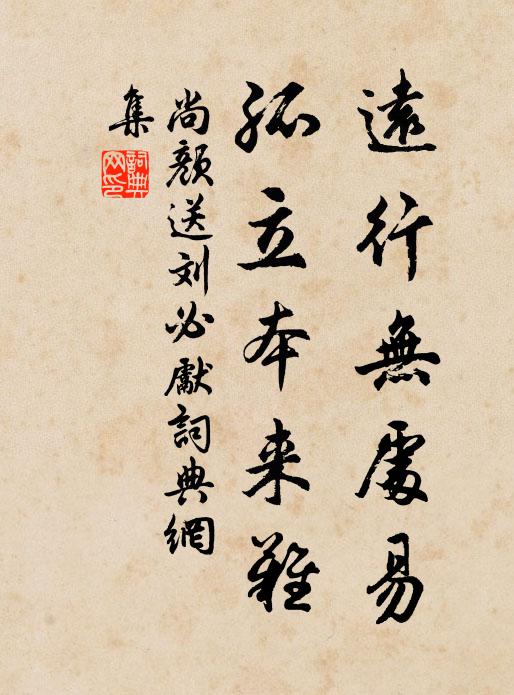 遠行無處易
孤立本来難
尚顏送刘必獻詞典網
集
詞典网印